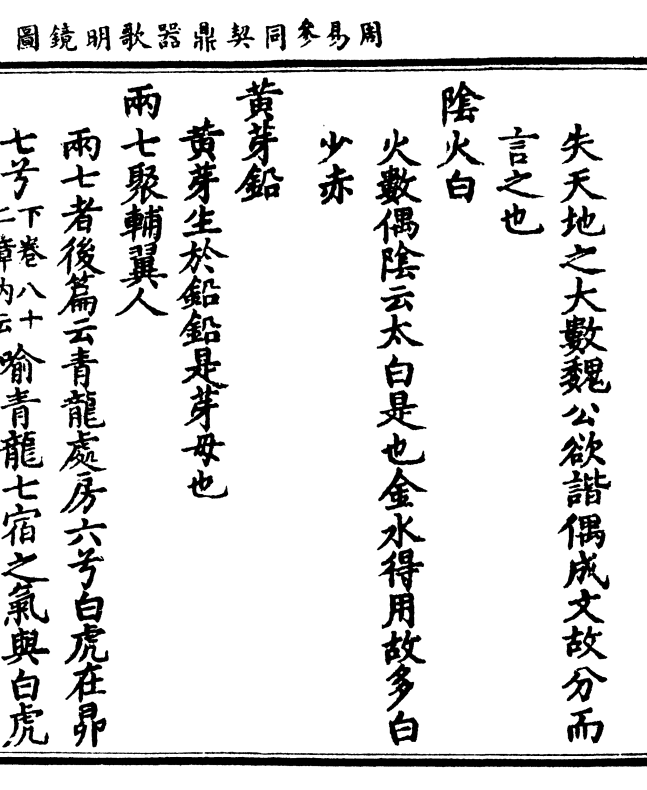 周易參同契鼎器歌明鏡圖
失天地之大數魏公欲諧偶成文故分而
言之也
陰火白
火數偶陰云太白是也金水得用故多白
少赤
黃芽鉛
黃芽生於鉛鉛是芽母也
兩七聚輔翼人
兩七者後篇云青龍處房六兮白虎在昴
七兮下卷八十二章內云喻青龍七宿之氣與白虎